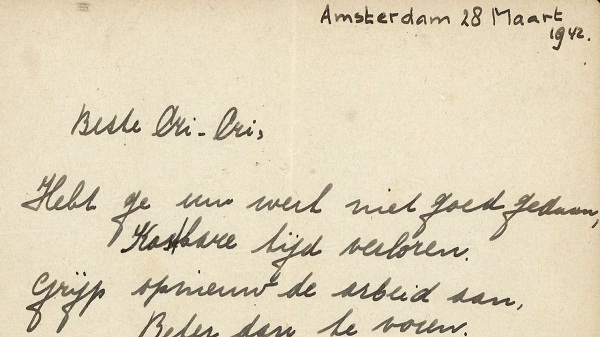 Amsterdam 28 Maart
1942.
Beste Cri-Cri,
Hebt ge uw werk niet goed gedaan,
Kostbare tijd verloren.
Grijp opnieuw de arbeid aan,
Beter dan te voren.